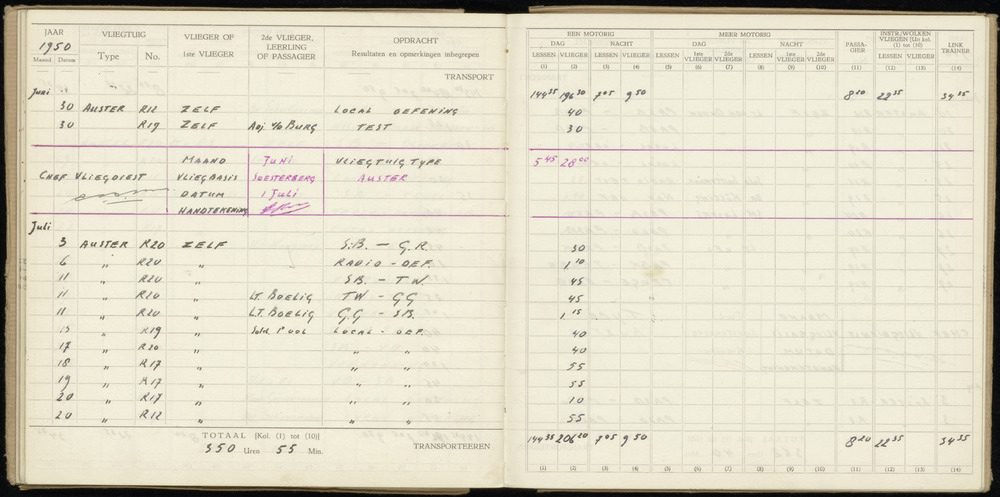 JAAR VLIEGTUIG VLIEGER OF 1ste VLIEGER 2de VLIEGER, LEERLING OF PASSAGIER OPDRACHT
1950 Type No. Resultaten en opmerkingen inbegrepen
Maand Datum
TRANSPORT
Juni
30 AUSTER R12 ZELF LOCAL OEFENING
30 R19 ZELF Adj. v/d BURG TEST
MAAND JUNI VLIEGTUIG TYPE
CHEF VLIEGDIENST VLIEGBASIS SOESTERBERG AUSTER
DATUM 1 Juli
HANDTEKENING
Juli
3 AUSTER R20 ZELF S.B. — G.R.
6 " R20 " RADIO - OEF.
11 " R20 " SB. - T.W.
11 " R20 " LT. BOELIG TW - GG
11 " R20 " LT. BOELIG G.G - SB.
15 " R19 " Sold. Pool LOCAL - OEF.
17 " R20 " " "
18 " R17 " " "
19 " R17 " " "
20 " R17 " " "
20 " R12 " " "
TOTAAL [Kol. (1) tot (10)]
350 Uren 55 Min.
TRANSPORTEEREN
EEN MOTORIG MEER MOTORIG PASSAGIER INSTR./WOLKEN VLIEGEN (Un kol. (1) tot (10) LINK TRAINER
DAG NACHT DAG NACHT
LESSEN VLIEGER LESSEN VLIEGER LESSEN 1ste VLIEGER 2de VLIEGER LESSEN 1ste VLIEGER 2de VLIEGER LESSEN VLIEGER
(1) (2) (3) (4) (5) (6) (7) (8) (9) (10) (11) (12) (13) (14)
144 35 196 30 7 05 9 50 8 20 22 35 34 35
40
30
5 45 28 00
30
1 10
45
45
1 15
40
40
55
55
10
55
144 35 206 20 7 05 9 50 8 20 22 35 34 35
(1) (2) (3) (4) (5) (6) (7) (8) (9) (10) (11) (12) (13) (14)